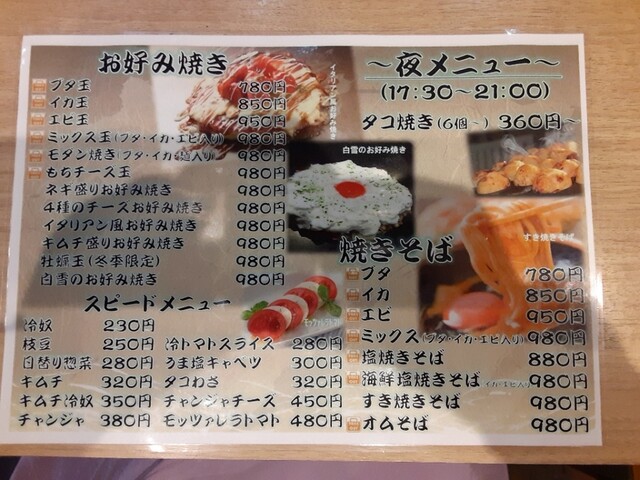 お好み焼き
ブタ玉 780円
イカ玉 850円
エビ玉 950円
ミックス玉(ブタ・イカ・エビ入り) 980円
モダン焼き(ブタ・イカ 入り) 980円
もちチーズ玉 980円
ネギ盛りお好み焼き 980円
4種のチーズお好み焼き 980円
イタリアン風お好み焼き 980円
キムチ盛りお好み焼き 980円
牡蠣玉(冬季限定) 980円
白雪のお好み焼き 980円
イタリアン風お好み焼き
白雪のお好み焼き
スピードメニュー
冷奴 230円
枝豆 250円 冷トマトスライス 280円
日替り惣菜 280円 うま塩キャベツ 300円
キムチ 320円 タコわさ 320円
キムチ冷奴 350円 チャンジャチーズ 450円
チャンジャ 380円 モッツァレラトマト 480円
モッツァレラトマト
~夜メニュー~
(17:30~21:00)
タコ焼き(6個~) 360円~
すき焼きそば
焼きそば
ブタ 780円
イカ 850円
エビ 950円
ミックス(ブタ・イカ・エビ入り) 980円
塩焼きそば 880円
海鮮塩焼きそば イカ・エビ入り 980円
すき焼きそば 980円
オムそば 980円